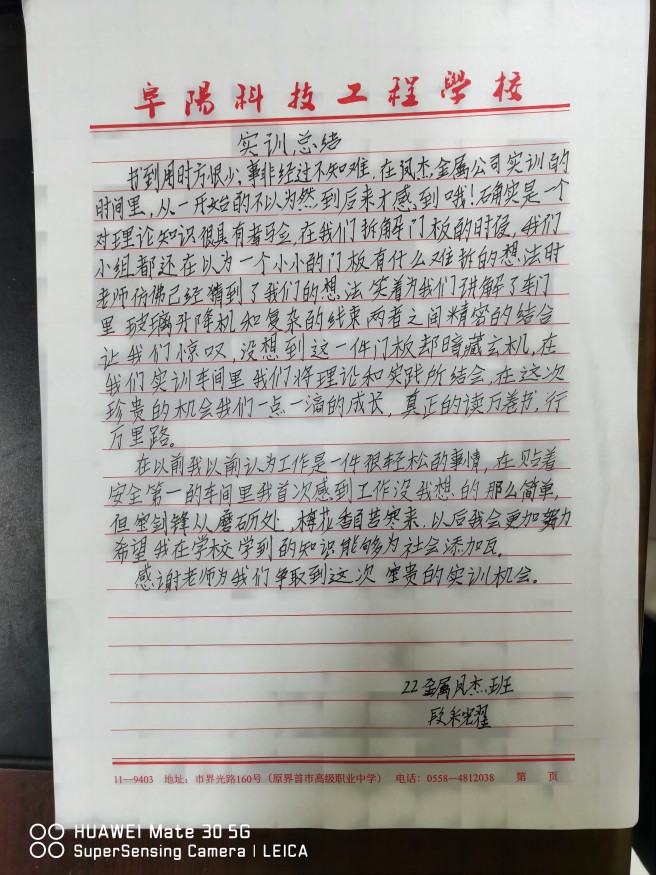 阜陽科技工程學校
实训总结
书到用时方恨少,事非经过不知难,在风杰金属公司实训的
时间里,从一开始的不以为然到后来才感到哦!确实是一个
对理论知识很具有考验,在我们拆解门板的时侯,我们
小组都还在以为一个小小的门板有什么难拆的想法时
老师仿佛已经猜到了我们的想法笑着为我们讲解了车门
里玻璃升降机和复杂的线束两者之间精密的结合
让我们惊叹,没想到这一件门板却暗藏玄机,在
我们实训车间里我们将理论和实践所结会,在这次
珍贵的机会我们一点一滴的成长,真正的读万卷书,行
万里路。
在以前我以前认为工作是一件很轻松的事情,在贴着
安全第一的车间里我首次感到工作没我想的那么简单,
但宝剑锋从磨砺处,梅花香自苦寒来,以后我会更加努力
希望我在学校学到的知识能够为社会添加瓦。
感谢老师为我们争取到这次宝贵的实训机会。
22金属风杰班
段
11—9403 地址:市界光路160号(原界首市高级职业中学) 电话:0558—4812038 第 页
HUAWEI Mate 30 5G
SuperSensing Camera | LEICA